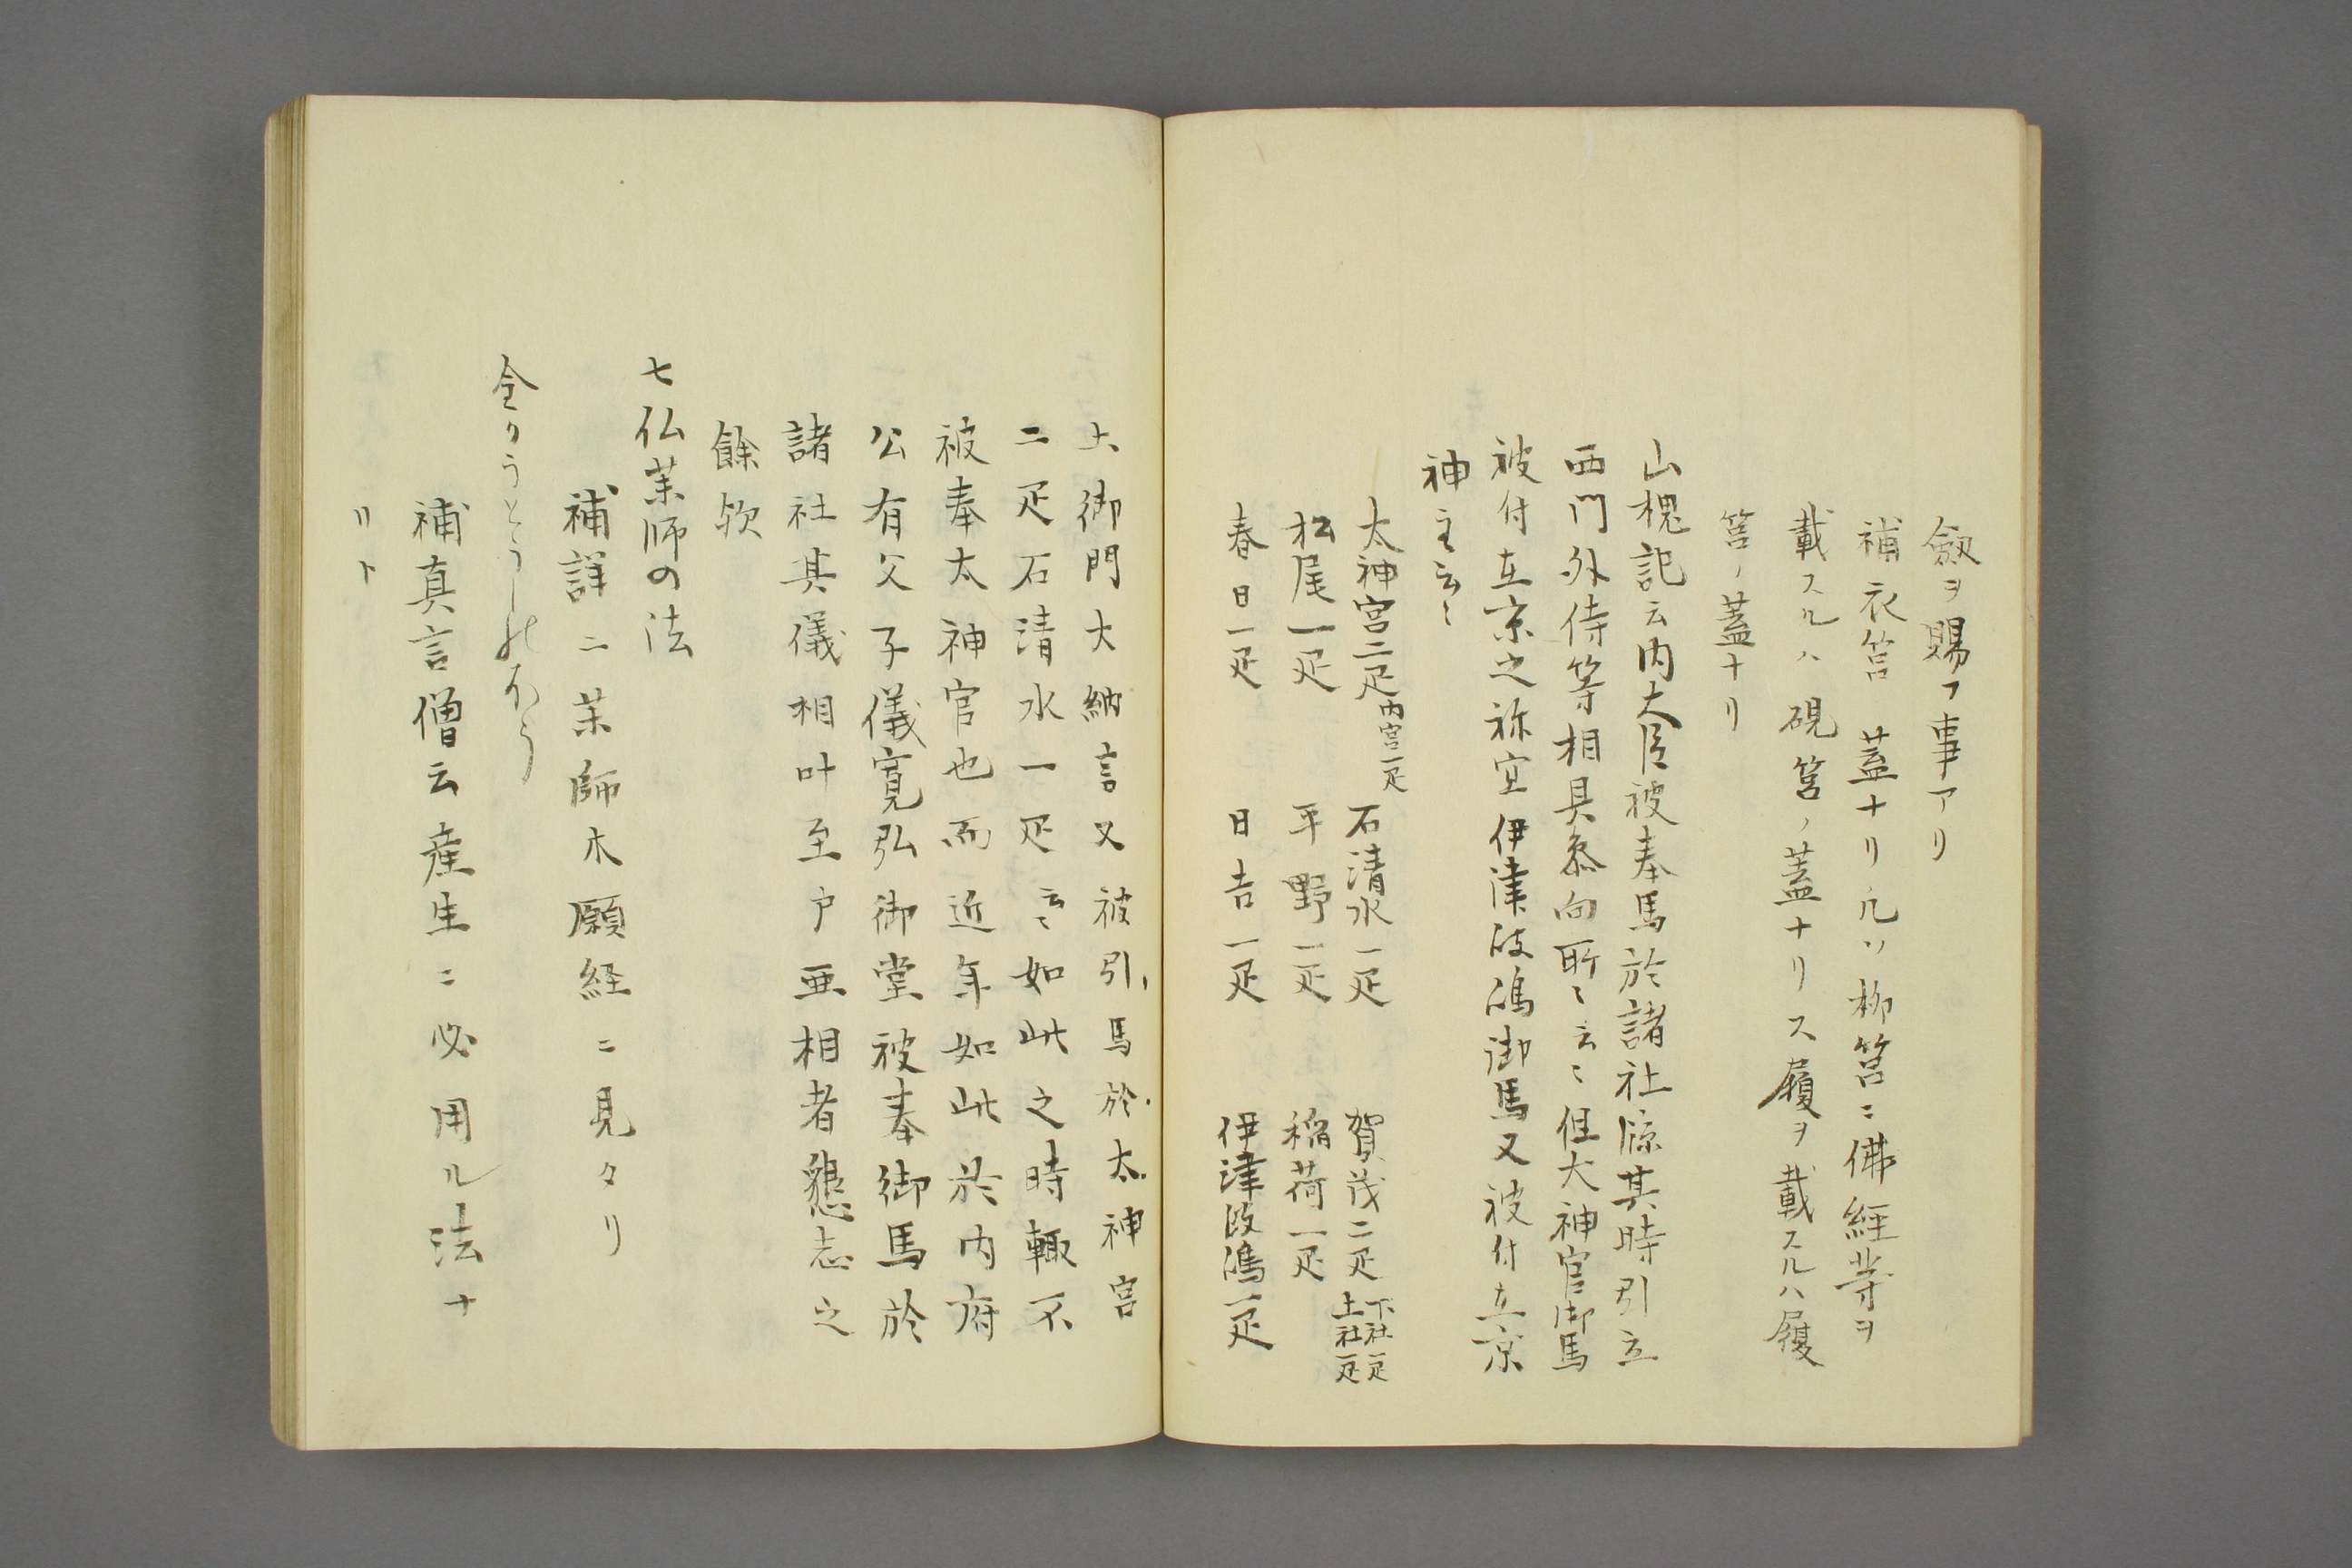 劔ヲ賜フ事アリ
補衣筥蓋ナリ凡ソ柳筥ニ佛経等ヲ
載スルハ硯筥ノ蓋ナリス履ヲ載スルハ履
筥ノ蓋ナリ
山槐記云内大臣被奉馬於諸社際其時引立
西門外侍等相具参向所〻云〻但大神宮御馬
被付在京之祢宜伊津岐嶋御馬又被付在京
神主云〻
太神宮二疋内宮一疋 石清水一疋 賀茂二疋下社一疋上社一疋
松尾一疋 平野一疋 稲荷一疋
春日一疋 日吉一疋 伊津岐嶋一疋
六御門大納言又被引馬於太神宮
二疋石清水一疋云〻如此之時輙不
被奉太神宮也而近年如此於内府
公有父子儀寛弘御堂被奉御馬於
諸社其儀相叶至戸亜相者懇志之
餘欤
七仏茉師の法
補詳ニ茉師本願経ニ見タリ
全りうとうしのほう
補真言僧云産生ニ必用ル法ナ
リト